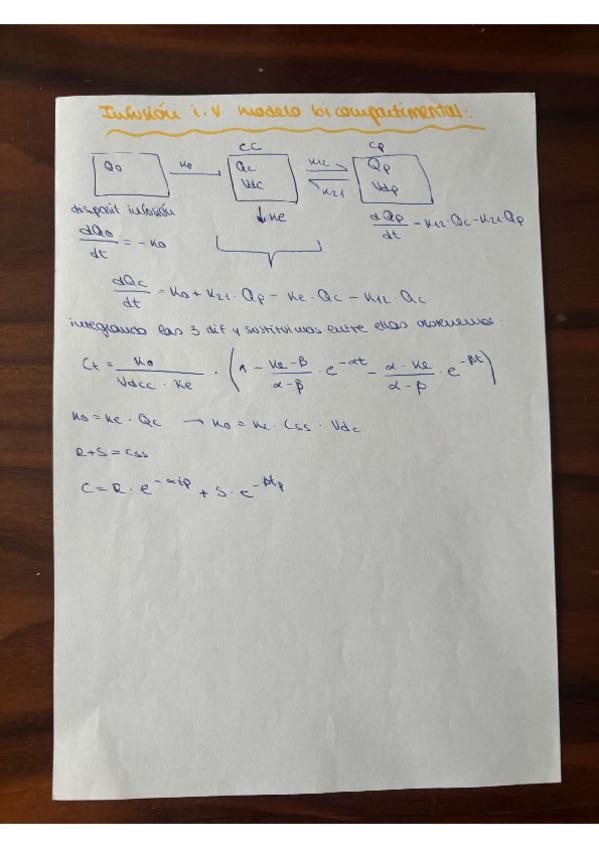 Infusión i.v modelo bicompartimental:
cc cp
Q0 K0 Qc K12 Qp
Vdc K21 Vdp
disposit infusión Ke
dQ0/dt = -K0
dQp/dt - K12·Qc-K21·Qp
dQc/dt = K0 + K21·Qp - Ke·Qc - K12·Qc
integrando las 3 dif y sustituimos entre ellas obtenemos:
Ct = K0/(Vdcc · Ke) · (1 - (Ke-β)/(α-β) · e^-αt - (α-Ke)/(α-β) · e^-βt)
K0 = Ke · Qc → K0 = Ke · Css · Vdc
R+S = Css
C = R · e^-αtp + S · e^-βtp